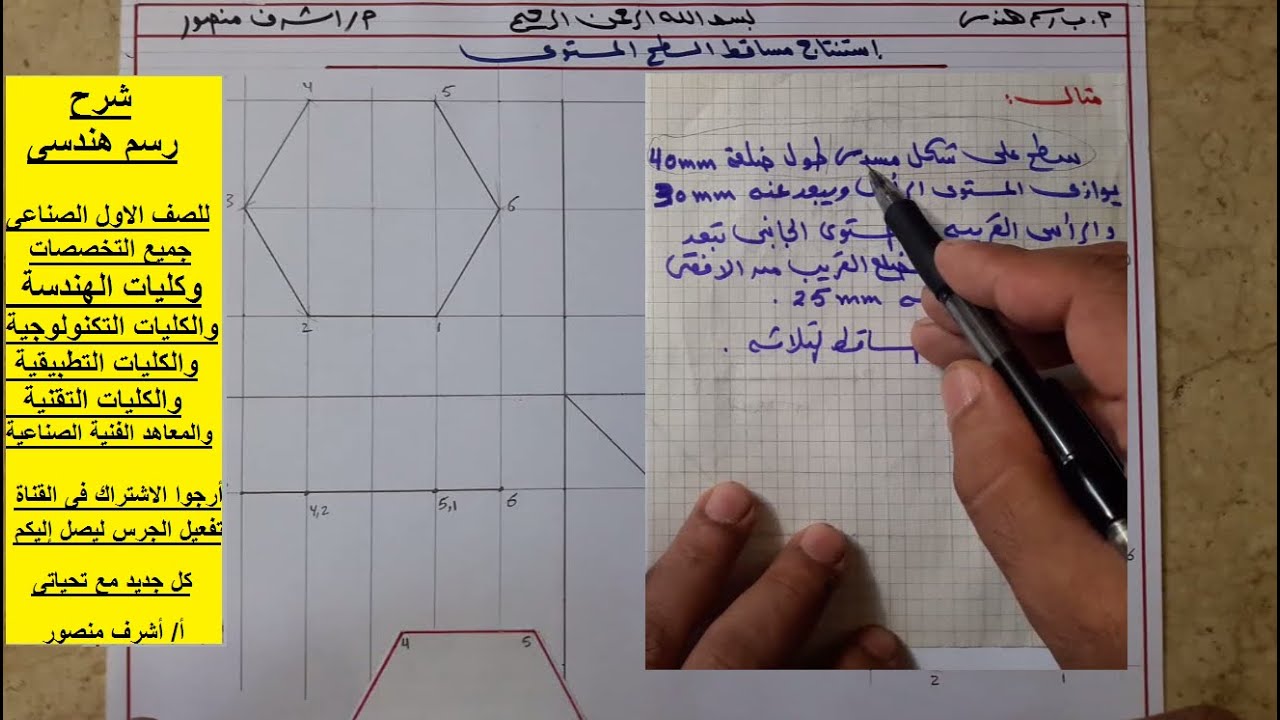 م. ب رسم هندسى
بسم الله الرحمن الرحيم
م/ اشرف منصور
إستنتاج مساقط السطح المستوى
شرح
رسم هندسى
للصف الاول الصناعى
جميع التخصصات
وكليات الهندسة
والكليات التكنولوجية
والكليات التطبيقية
والكليات التقنية
والمعاهد الفنية الصناعية
أرجوا الاشتراك فى القناة
تفعيل الجرس ليصل إليكم
كل جديد مع تحياتى
أ/ أشرف منصور
4 5
3 6
2 1
4,2 5,1 6
4 5
مثال:
سطح على شكل مسدس طول ضلعة 40mm
يوازى المستوى ويبعد عنه 30mm
والرأس القريبه المستوى الجانبى تبعد
القريب من الافقى
25 mm .
الثلاثه .
6
2 1